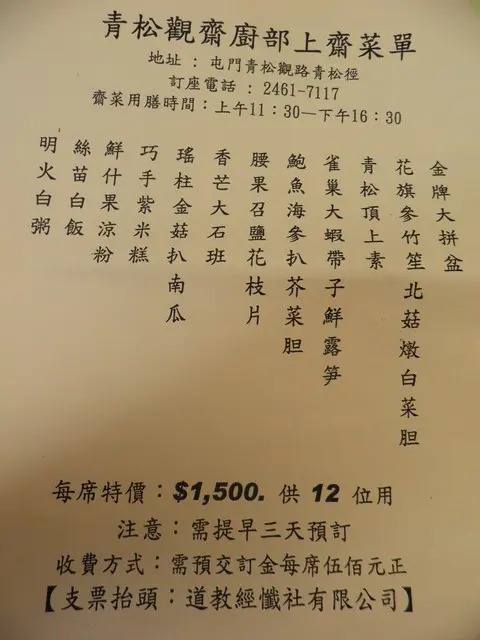 青松觀齋廚部上齋菜單
地址：屯門青松觀路青松徑
訂座電話：2461-7117
齋菜用膳時間：上午11：30—下午16：30
金牌大拼盆
花旗參竹笙北菇燉白菜胆
青松頂上素
雀巢大蝦帶子鮮露笋
鮑魚海參扒芥菜胆
腰果召鹽花枝片
香芒大石班
瑤柱金菇扒南瓜
巧手紫米糕
鮮什果涼粉
絲苗白飯
明火白粥
每席特價：$1,500. 供 12 位用
注意：需提早三天預訂
收費方式：需預交訂金每席伍佰元正
【支票抬頭：道教經懺社有限公司】